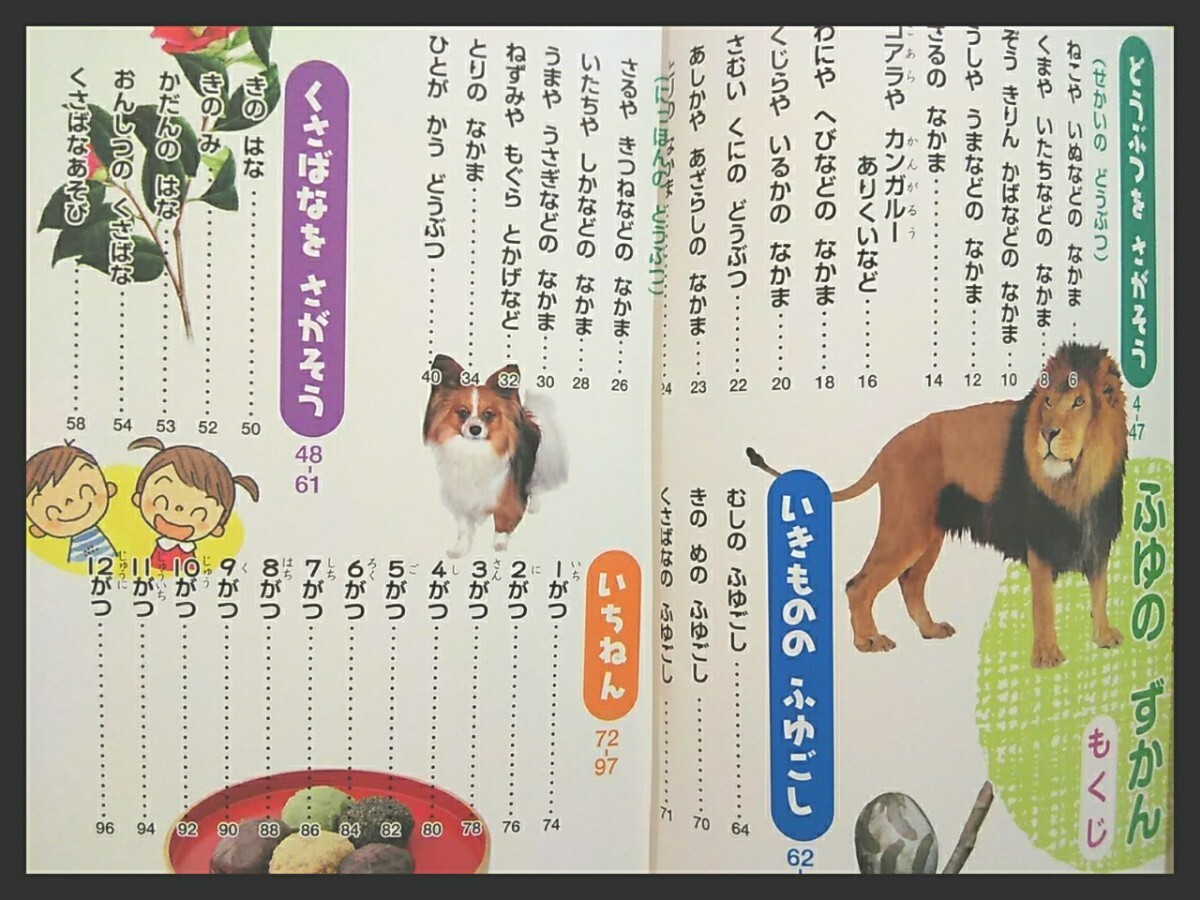 ふゆの ずかん
もくじ
どうぶつを さがそう
4-47
(せかいの どうぶつ)
ねこや いぬなどの なかま……6
くまや いたちなどの なかま……8
ぞう きりん かばなどの なかま……10
うしや うまなどの なかま……12
さるの なかま……14
コアラや カンガルー
こあら かんがるう
ありくいなど……16
わにや へびなどの なかま……18
くじらや いるかの なかま……20
さむい くにの どうぶつ……22
あしかや あざらしの なかま……23
なかま……24
(にほんの どうぶつ)
さるや きつねなどの なかま……26
いたちや しかなどの なかま……28
うまや うさぎなどの なかま……30
ねずみや もぐら とかげなど……32
とりの なかま……34
ひとが かう どうぶつ……40
くさばなを さがそう
48-61
きの はな……50
きの み……52
かだんの はな……53
おんしつの くさばな……54
くさばなあそび……58
いきものの ふゆごし
62
むしの ふゆごし……64
きの めの ふゆごし……70
くさばなの ふゆごし……71
いちねん
72-97
いち
1がつ……74
に
2がつ……76
さん
3がつ……78
し
4がつ……80
ご
5がつ……82
ろく
6がつ……84
しち
7がつ……86
はち
8がつ……88
く
9がつ……90
じゅう
10がつ……92
じゅういち
11がつ……94
じゅうに
12がつ……96